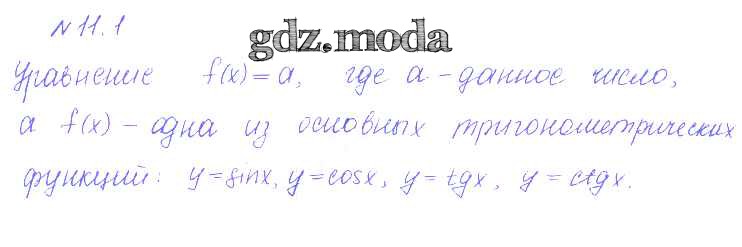 № 11.1
gdz.moda
Уравнение f(x) = a, где a - данное число,
а f(x) - одна из основных тригонометрических
функций: y = sinx, y = cosx, y = tgx, y = ctgx.